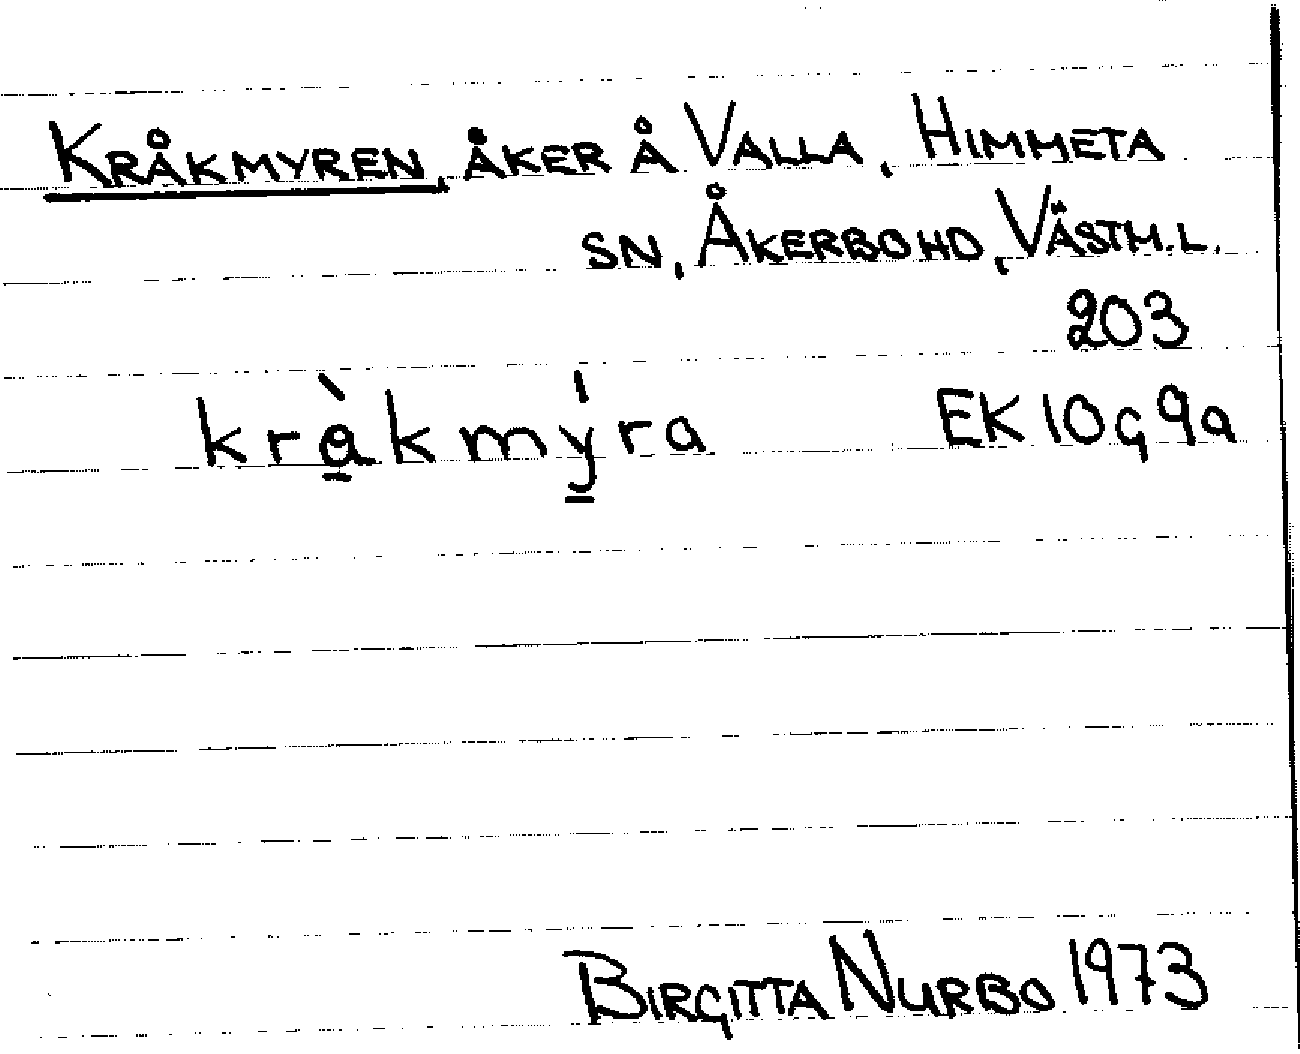 KRÅKMYREN, ÅKER Å VALLA, HIMMETA
SN, ÅKERBO HD, VÄSTM.L.
203
kràkmýra EK 10G9a
BIRGITTA NURBO 1973